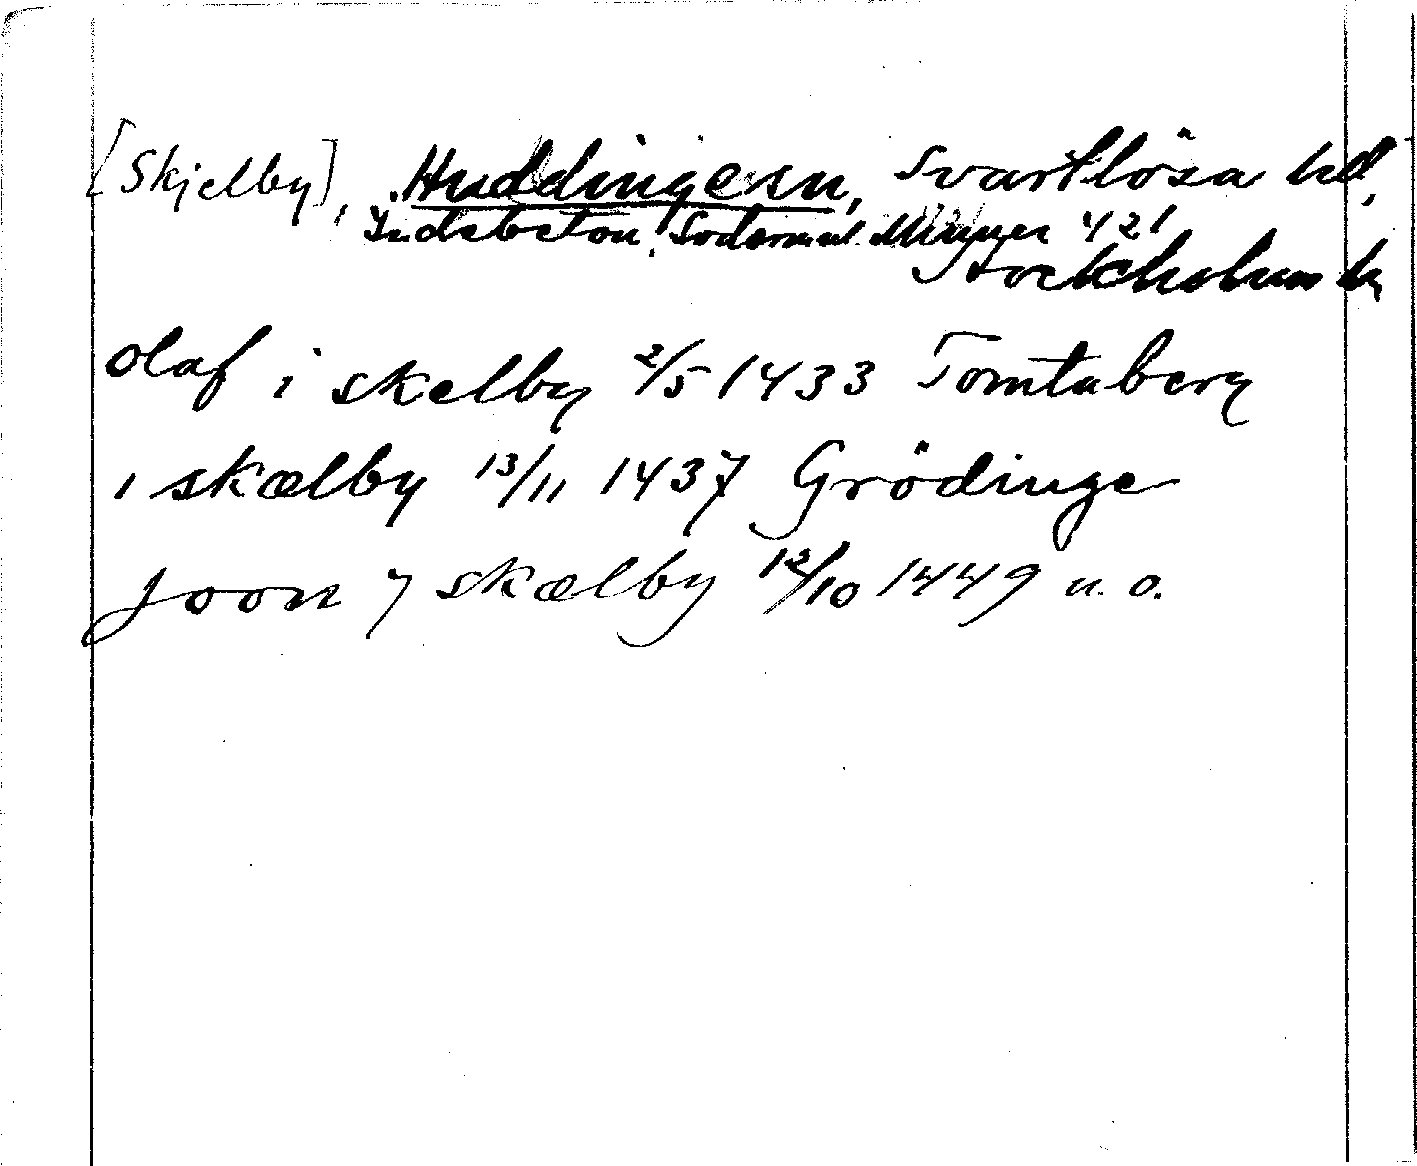 [Skjelby], Huddinge sn, Svartlösa hd,
Södermal. 421
Stockholms l.
olaf i skelby 2/5 1433 Tomtaberg
i skælby 13/11 1437 Grödinge
Joon j skælby 12/10 1449 u. o.